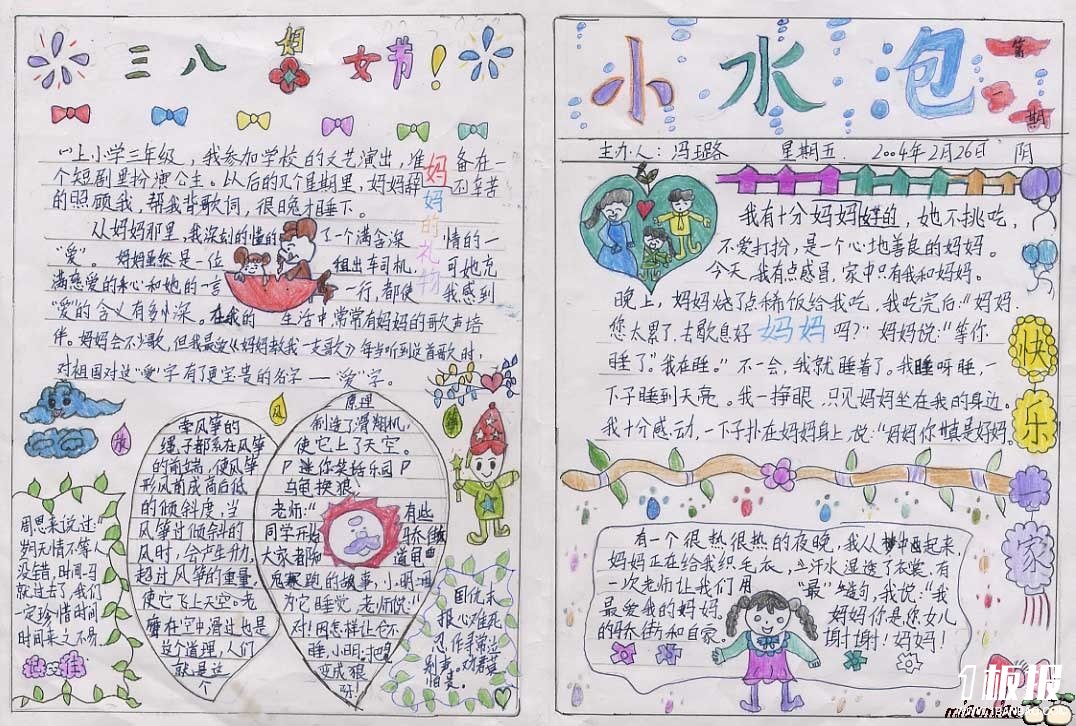 三八妇女节!
上小学三年级,我参加学校的文艺演出,准备在一
个短剧里扮演公主。以后的几个星期里,妈妈
的照顾我,帮我背歌词,很晚才睡下。
妈妈的礼物
从妈妈那里,我深刻的懂的了一个满含深情的一
"爱"。妈妈虽然是一位出租车司机,可她充
满慈爱的和她的一言一行,都使我感到
"爱"的含义有多深。在我的生活中,常常有妈妈的歌声培
伴。妈妈会不少歌,但我最爱《妈妈教我一支歌》每当听到这首歌时,
对祖国对这"爱"字有了更宝贵的名字——"爱"字。
风筝
原理
牵风筝的
绳子都系在风筝
的前端,使风筝
形成前高后低
的倾斜度,当
风筝过倾斜的
风时,会产生升力,
超过风筝的重量,
使它飞上天空。老
鹰在空中滑过也是
这个道理,人们
就是这
个
制造了滑翔机,
使它上了天空。
P 迷你笑话乐园 P
乌龟换狼
老师:"有些
同学开始骄傲
大家都知道龟
兔赛跑的故事,小明
为它睡觉,老师说:"
对!因怎样让它不
睡,小明:"把
变成狼
呀!
周恩来说过:"
时间无情不等人
没错,时间一马
就过去了,我们
一定珍惜时间
时间来之不易
记住
小水泡
第一期
主办人:冯璐 星期五 2004年2月26日 阴
我有十分妈妈,她不挑吃,
不爱打扮,是一个心地善良的妈妈。
今天,我有点感冒,家中只有我和妈妈。
晚上,妈妈烧了点稀饭给我吃,我吃完后:"妈妈
您太累了,去歇息好吗?"妈妈说:"等你
妈妈
睡了"我在睡。"不一会,我就睡着了。我睡呀睡,一
下子睡到天亮。我一挣眼,只见妈妈坐在我的身边。
我十分感动,一下子扑在妈妈身上,说:"妈妈你真是好妈妈。
快乐一家
有一个很热很热的夜晚,我从梦中起来,
妈妈正在给我织毛衣,汗水湿透了衣裳.有
一次老师让我们用"最"造句,我说:"我
最爱我的妈妈,妈妈你是您女儿
的骄傲和自豪。谢谢!妈妈!
1板报
WWW.1BANBAO.COM